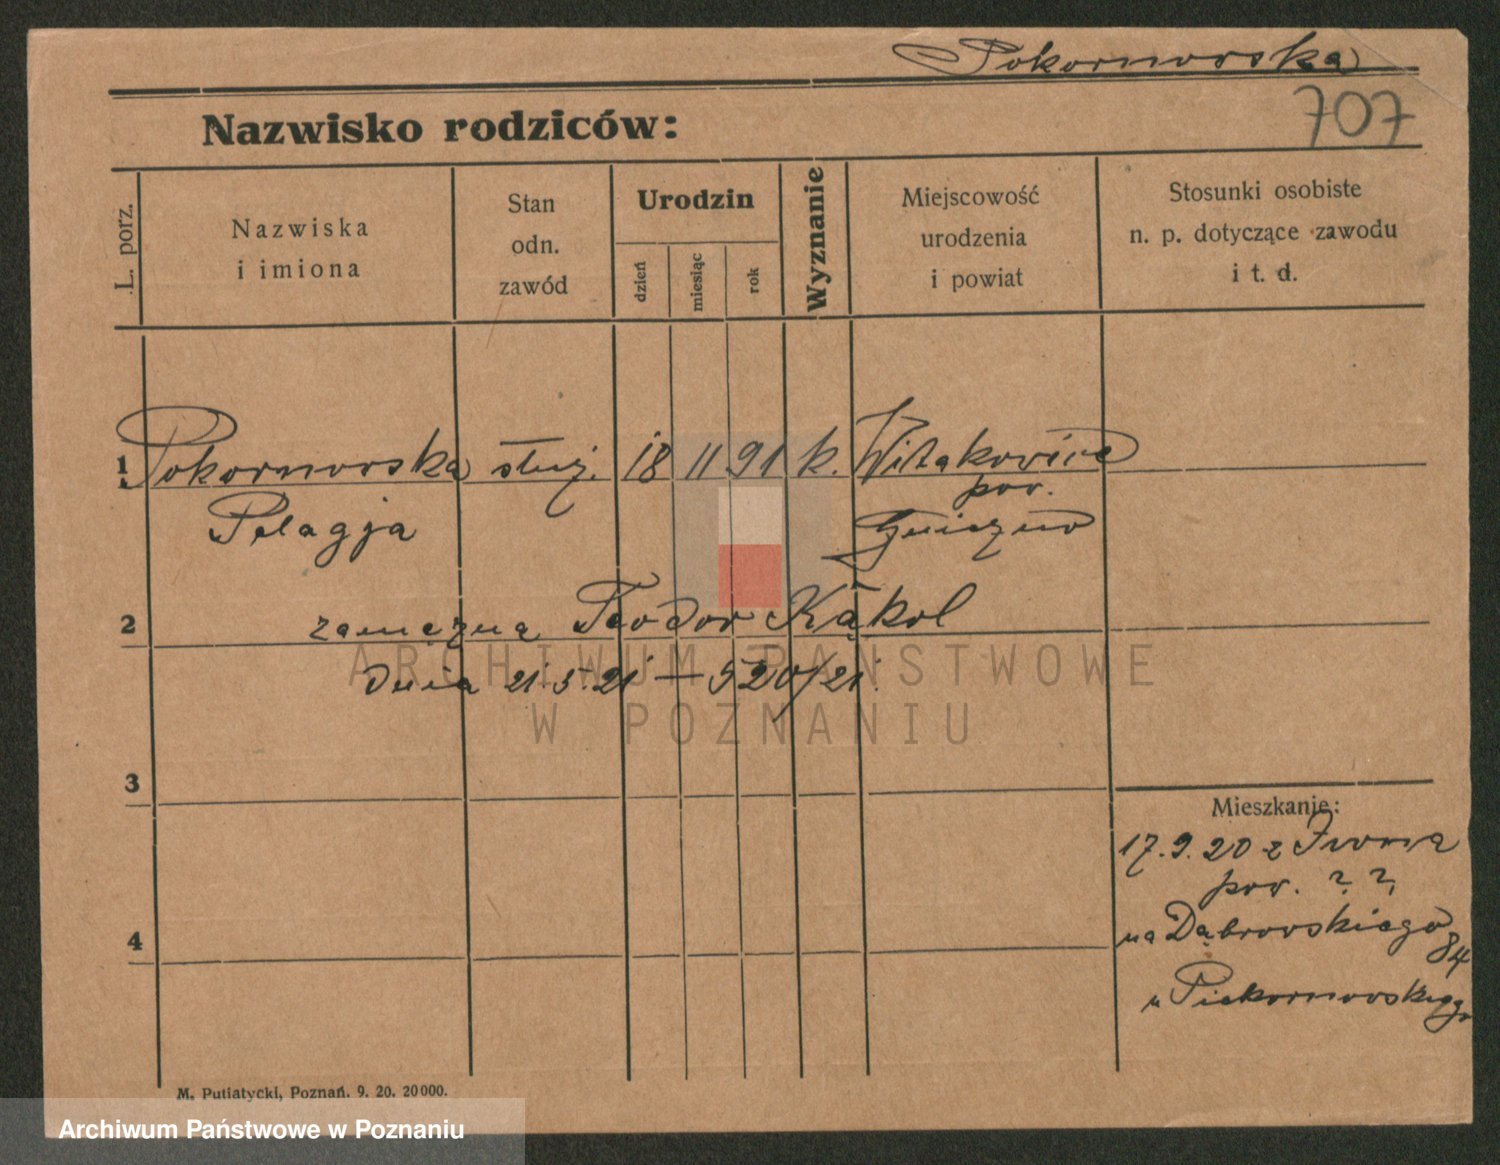 Pokornowska
707
Nazwisko rodziców:
L. porz.
Nazwiska
i imiona
Stan
odn.
zawód
Urodzin
dzień
miesiąc
rok
Wyznanie
Miejscowość
urodzenia
i powiat
Stosunki osobiste
n. p. dotyczące zawodu
i t. d.
1 Pokornowska służ. 18 11 91 k. Witakowice
pow.
Pelagja Gniezno
2 zamężna Teodor Kąkol
dnia 21.5.21 — 520/21.
ARCHIWUM PAŃSTWOWE
W POZNANIU
3
Mieszkanie:
17.9.20 z
pow. ? ?
na Dąbrowskiego
84
4
u Piekornowskiego
M. Putiatycki, Poznań. 9. 20. 20000.
Archiwum Państwowe w Poznaniu